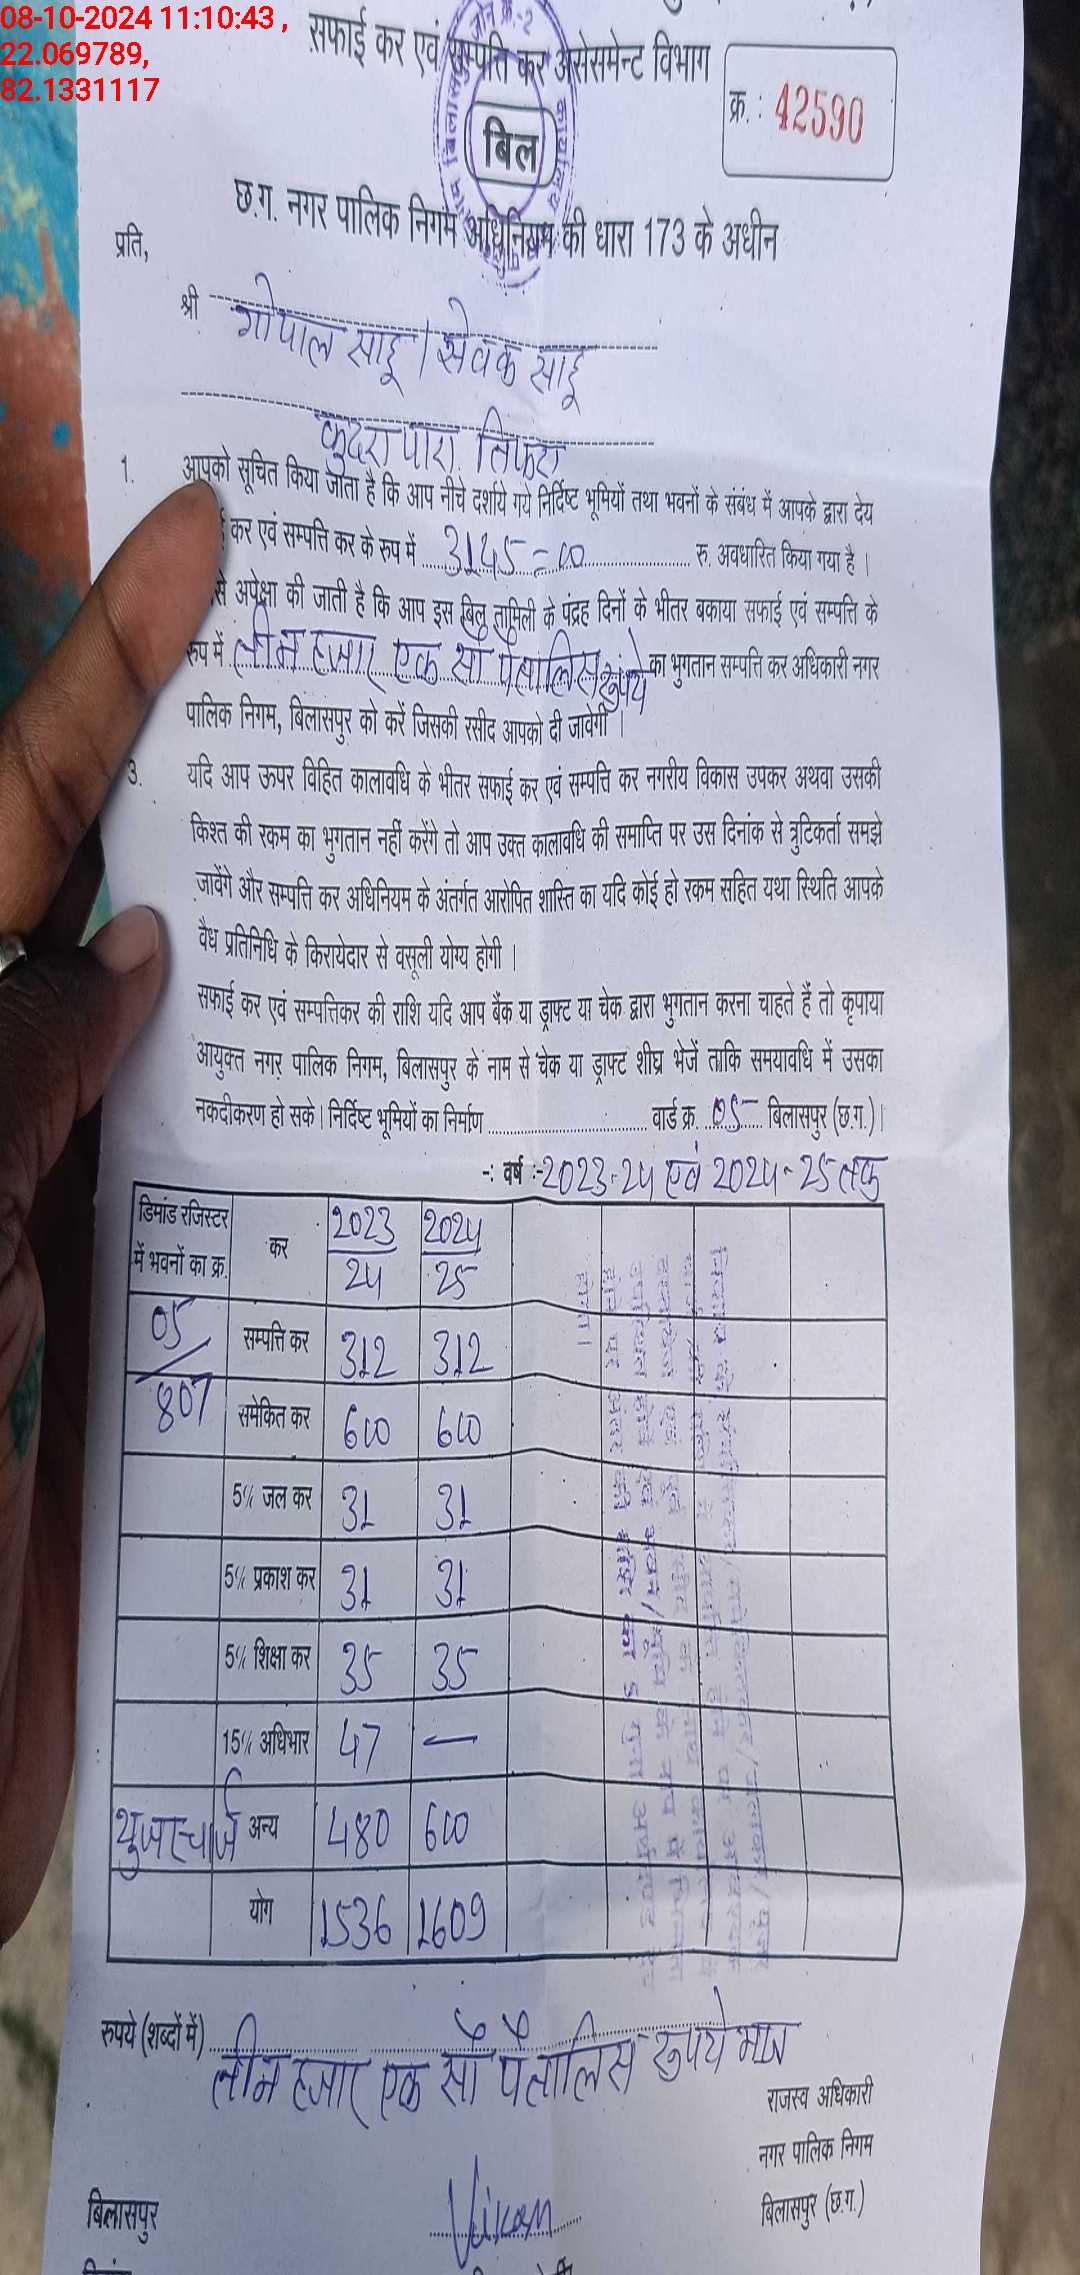 08-10-2024 11:10:43 ,
22.069789,
82.1331117
सफाई कर एवं सम्पत्ति कर असेसमेन्ट विभाग
क्र. : 42590
बिल
छ.ग. नगर पालिक निगम अधिनियम की धारा 173 के अधीन
प्रति,
श्री गोपाल साहू / सेवक साहू
कुदरा पारा. तिफरा
1. आपको सूचित किया जाता है कि आप नीचे दर्शाये गये निर्दिष्ट भूमियों तथा भवनों के संबंध में आपके द्वारा देय
कर एवं सम्पत्ति कर के रुप में 3145=00 रु. अवधारित किया गया है ।
से अपेक्षा की जाती है कि आप इस बिल तामिली के पंद्रह दिनों के भीतर बकाया सफाई एवं सम्पत्ति के
रुप में तीन हजार एक सौ पैतालिस रुपये का भुगतान सम्पत्ति कर अधिकारी नगर
पालिक निगम, बिलासपुर को करें जिसकी रसीद आपको दी जावेगी ।
3. यदि आप ऊपर विहित कालावधि के भीतर सफाई कर एवं सम्पत्ति कर नगरीय विकास उपकर अथवा उसकी
किश्त की रकम का भुगतान नहीं करेंगे तो आप उक्त कालावधि की समाप्ति पर उस दिनांक से त्रुटिकर्ता समझे
जावेंगे और सम्पत्ति कर अधिनियम के अंतर्गत आरोपित शास्ति का यदि कोई हो रकम सहित यथा स्थिति आपके
वैध प्रतिनिधि के किरायेदार से वसूली योग्य होगी ।
सफाई कर एवं सम्पत्तिकर की राशि यदि आप बैंक या ड्राफ्ट या चेक द्वारा भुगतान करना चाहते हैं तो कृपाया
आयुक्त नगर पालिक निगम, बिलासपुर के नाम से चेक या ड्राफ्ट शीघ्र भेजें ताकि समयावधि में उसका
नकदीकरण हो सके । निर्दिष्ट भूमियों का निर्माण वार्ड क्र. 05 बिलासपुर (छ.ग.) ।
-: वर्ष :- 2023-24 एवं 2024-25 तक
डिमांड रजिस्टर में भवनों का क्र. कर 2023/24 2024/25
05/807 सम्पत्ति कर 312 312
समेकित कर 600 600
5% जल कर 31 31
5% प्रकाश कर 31 31
5% शिक्षा कर 35 35
15% अधिभार 47 —
यूजरचार्ज अन्य 480 600
योग 1536 1609
रुपये (शब्दों में) तीन हजार एक सौ पैतालिस रुपये मात्र
राजस्व अधिकारी
नगर पालिक निगम
बिलासपुर (छ.ग.)
बिलासपुर